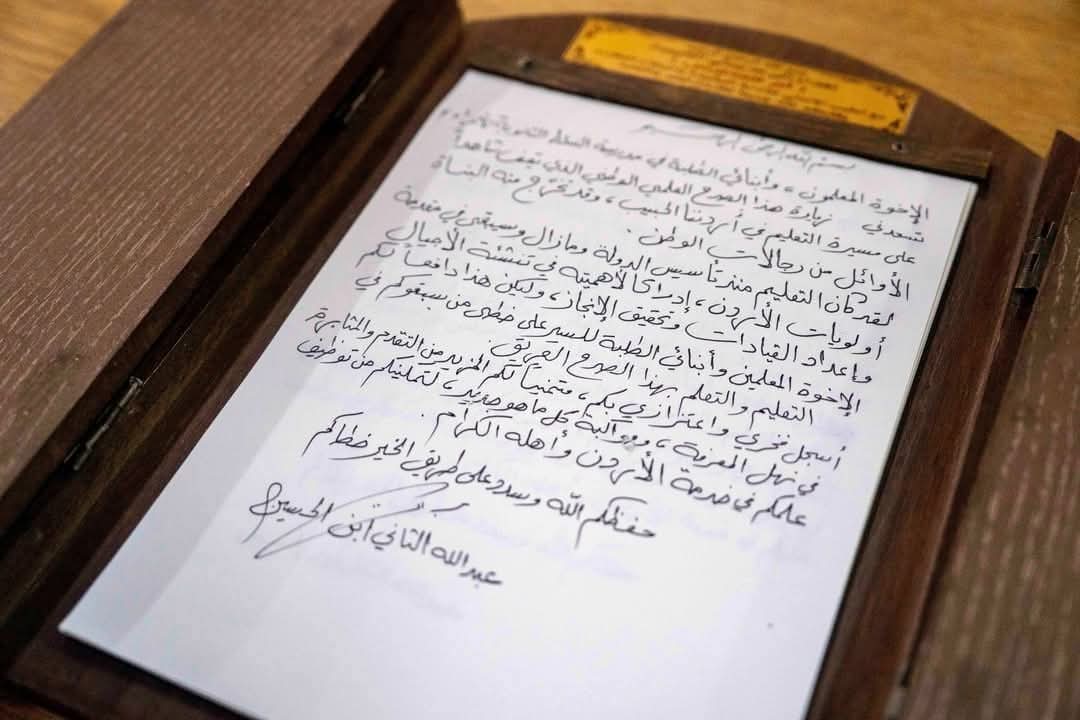 بسم الله الرحمن الرحيم
الإخوة المعلمون، وأبنائي الطلبة في مدرسة السلط الثانوية
تسعدني زيارة هذا الصرح العلمي الوطني الذي تقف شاهداً
على مسيرة التعليم في أردننا الحبيب، وقد تخرج منه البناة
الأوائل من رجالات الوطن.
لقد كان التعليم منذ تأسيس الدولة ومازال وسيبقى في مقدمة
أولويات الأردن، إدراكاً لأهميته في تنشئة الأجيال
وإعداد القيادات وتحقيق الإنجاز، وليكن هذا دافعاً لكم
الإخوة المعلمين وأبنائي الطلبة للسير على خطى من سبقوكم في
التعليم والتعلم بهذا الصرح العريق.
أسجل فخري واعتزازي بكم، متمنياً لكم المزيد من التقدم والمثابرة
في نهل المعرفة، ومواكبة كل ما هو جديد، لتمكينكم من توظيف
علمكم في خدمة الأردن وأهله الكرام.
حفظكم الله وسدد على طريق الخير خطاكم
عبدالله الثاني ابن الحسين